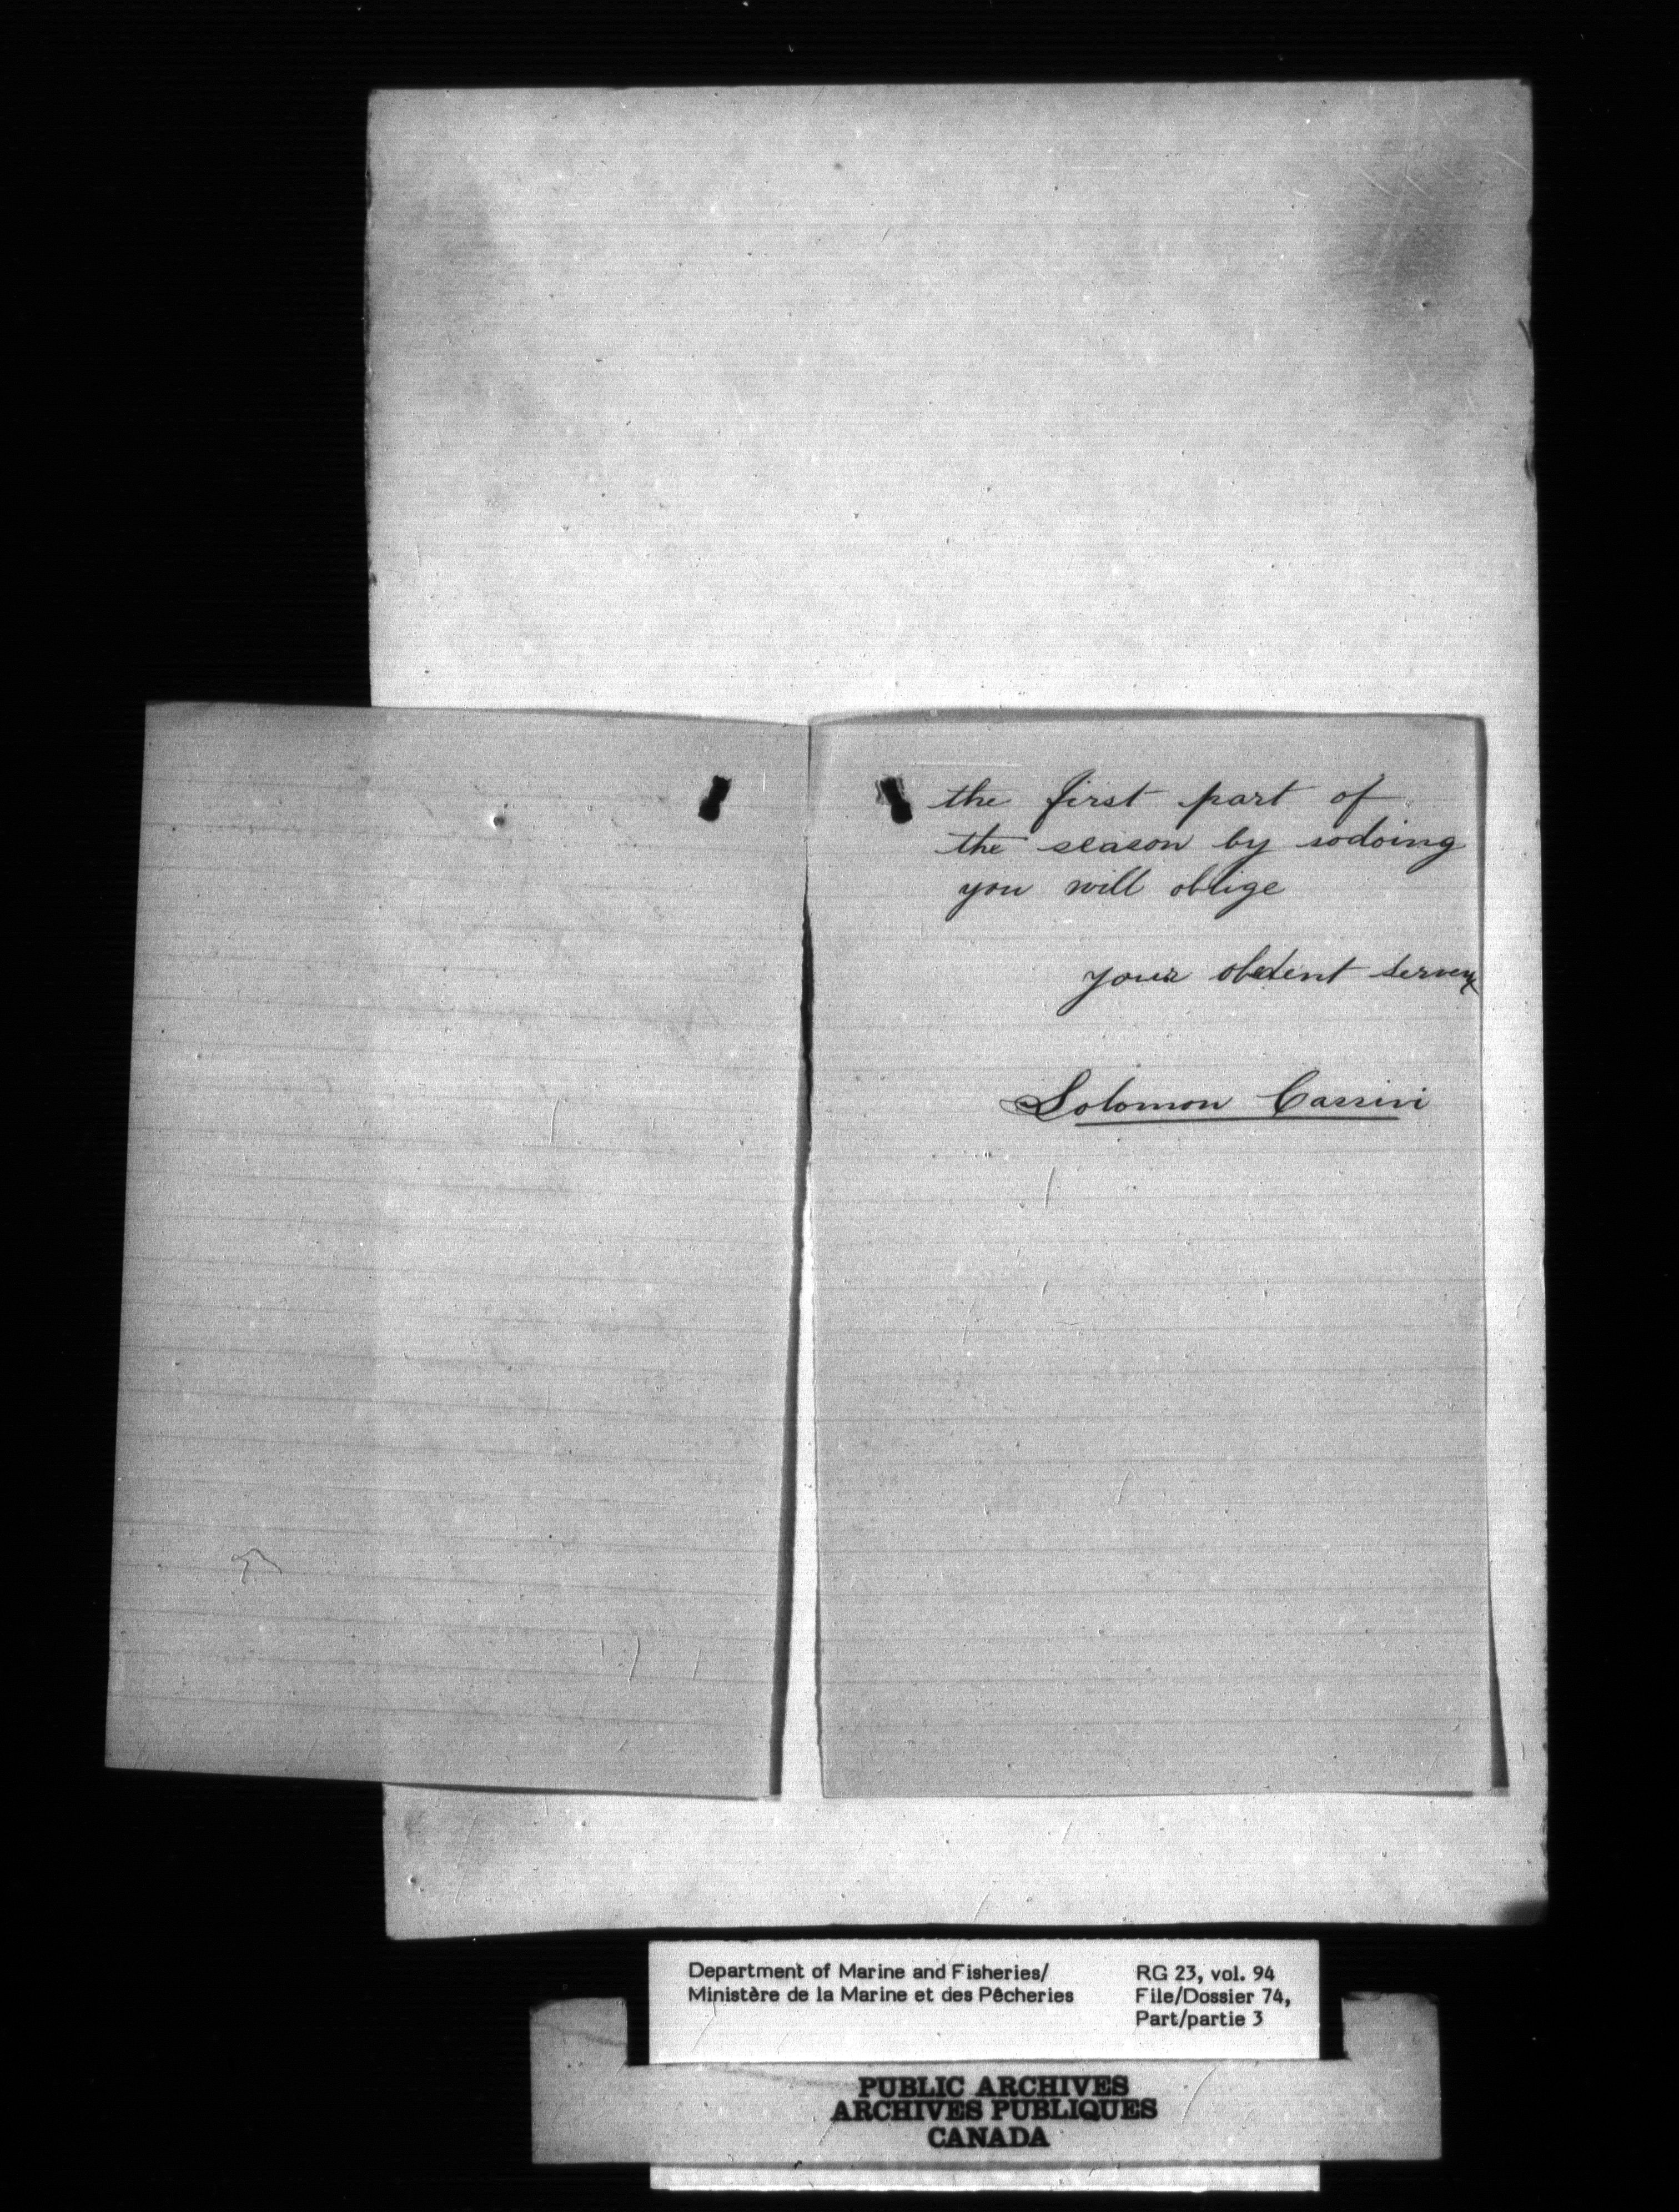 the first part of
the season by sodoing
you will oblige
your obedent
Solomon Cassivi
Department of Marine and Fisheries/
Ministère de la Marine et des Pêcheries
RG 23, vol. 94
File/Dossier 74,
Part/partie 3
PUBLIC ARCHIVES
ARCHIVES PUBLIQUES
CANADA